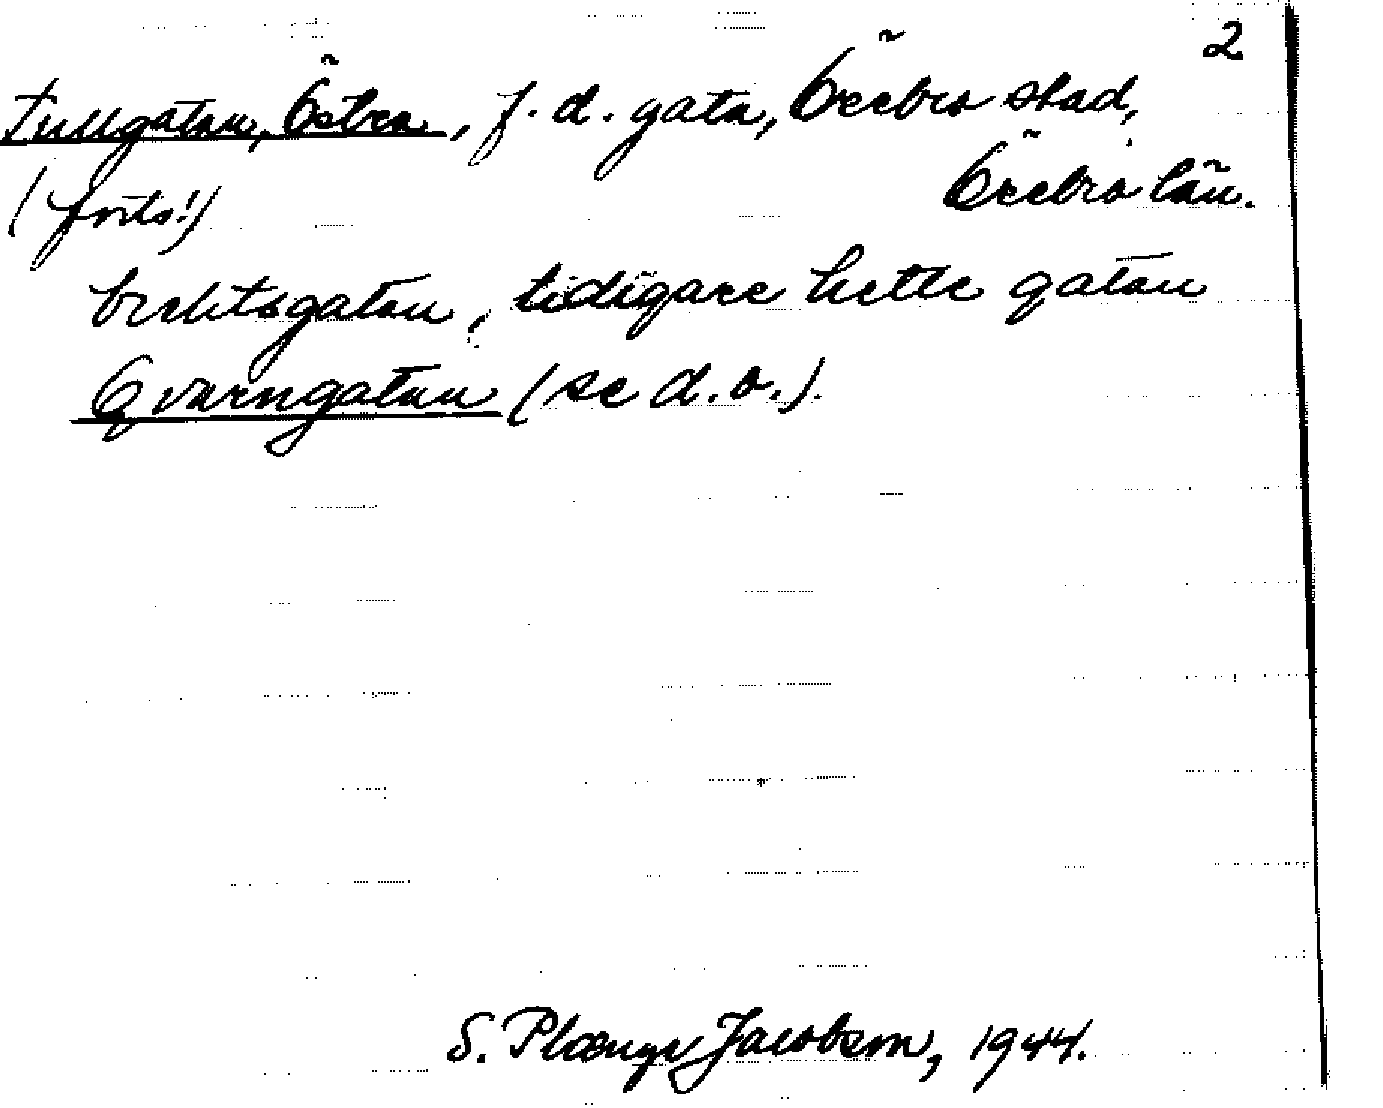 2
Tullgatan, Östra, f. d. gata, Örebro stad,
(forts!) Örebro län.
brektsgatan, tidigare hette gatan
Qvarngatan (se d.o.).
S. Plænge Jacobson, 1944.